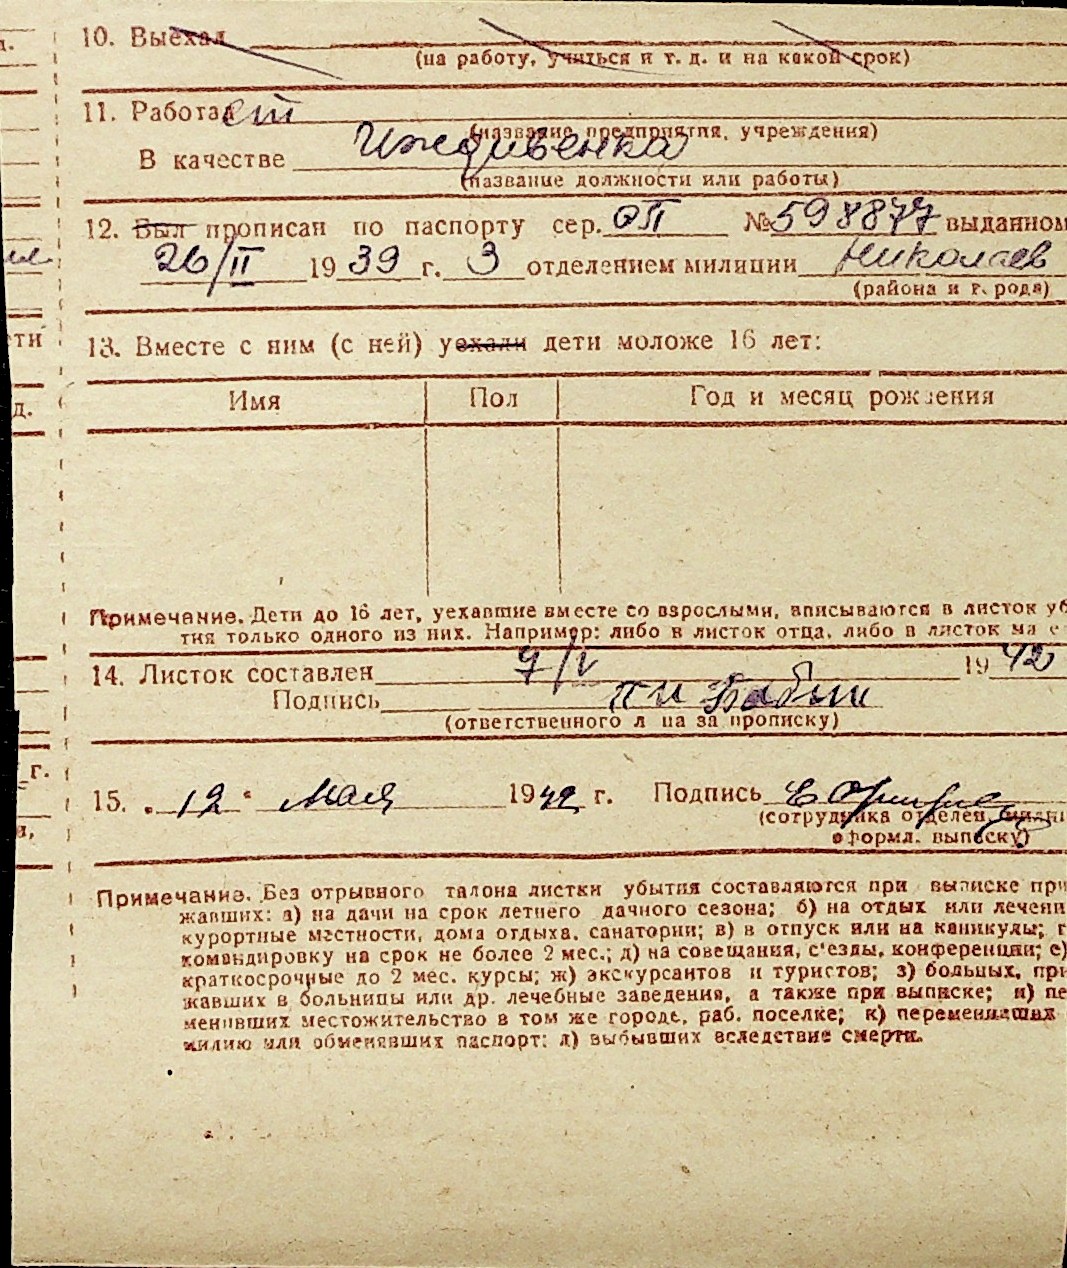 10. Выехал
(на работу, учиться и т. д. и на какой срок)
11. Работает
(название предприятия, учреждения)
В качестве Иждивенка
(название должности или работы)
12. Был прописан по паспорту сер. ОП № 598877 выданном
26/II 1939 г. 3 отделением милиции Николаев
(района и города)
13. Вместе с ним (с ней) уехали дети моложе 16 лет:
Имя Пол Год и месяц рождения
Примечание. Дети до 16 лет, уехавшие вместе со взрослыми, вписываются в листок уб
тия только одного из них. Например: либо в листок отца, либо в листок
14. Листок составлен 9/V 1942
Подпись
(ответственного лица за прописку)
15. „12“ Мая 1942 г. Подпись
(сотрудника отделен. мили
оформл. выписку)
Примечание. Без отрывного талона листки убытия составляются при выписке при
жавших: а) на дачи на срок летнего дачного сезона; б) на отдых или лечени
курортные местности, дома отдыха, санатории; в) в отпуск или на каникулы; г
командировку на срок не более 2 мес.; д) на совещания, с'езды, конференции; е)
краткосрочные до 2 мес. курсы; ж) экскурсантов и туристов; з) больных, при
жавших в больницы или др. лечебные заведения, а также при выписке; и) пе
менивших местожительство в том же городе, раб. поселке; к) переменивших
милию или обменявших паспорт; л) выбывших вследствие смерти.